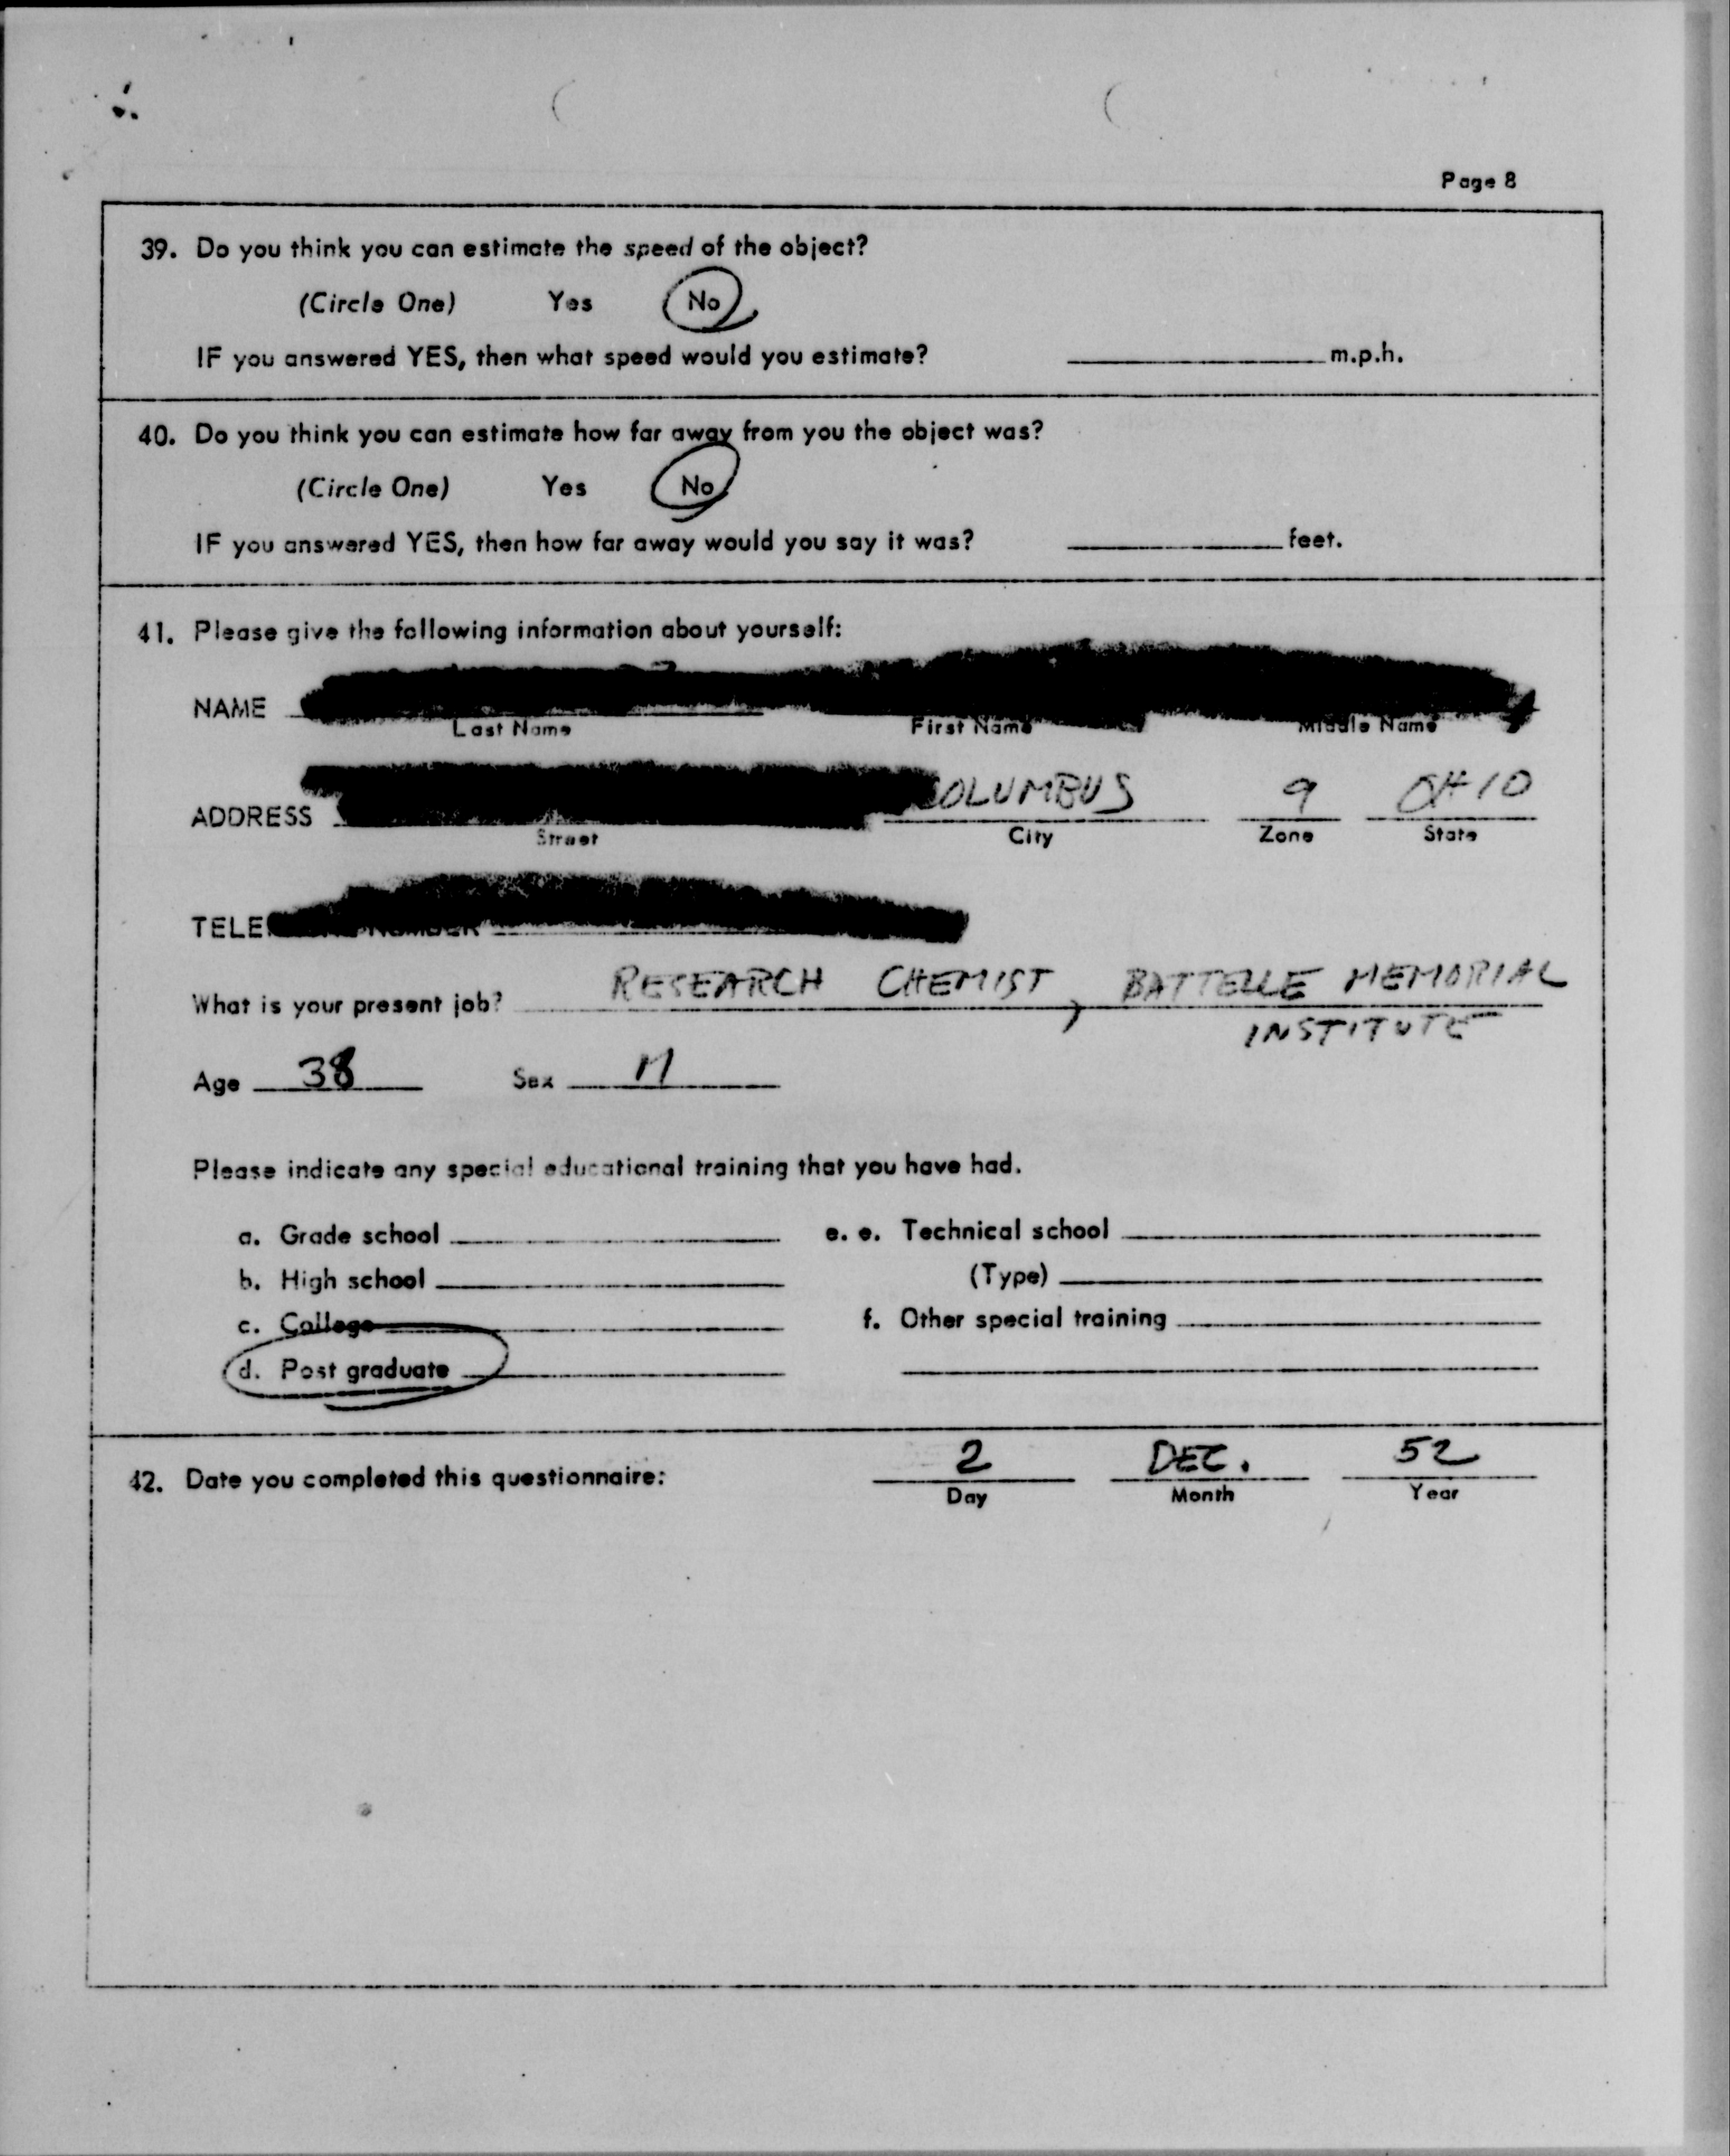 Page 8
39. Do you think you can estimate the speed of the object?
(Circle One) Yes No
IF you answered YES, then what speed would you estimate? m.p.h.
40. Do you think you can estimate how far away from you the object was?
(Circle One) Yes No
IF you answered YES, then how far away would you say it was? feet.
41. Please give the following information about yourself:
NAME
Last Name First Name Middle Name
ADDRESS COLUMBUS 9 OHIO
Street City Zone State
TELE NUMBER
RESEARCH CHEMIST, BATTELLE MEMORIAL
What is your present job?
INSTITUTE
Age 38 Sex M
Please indicate any special educational training that you have had.
a. Grade school e. e. Technical school
b. High school (Type)
c. College f. Other special training
d. Post graduate
42. Date you completed this questionnaire: 2 DEC. 52
Day Month Year